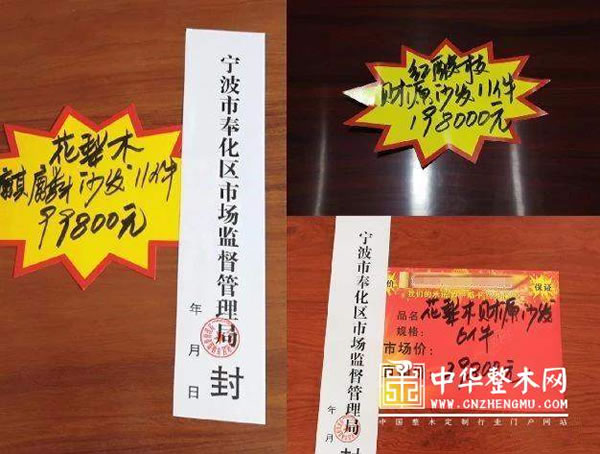 花梨木
麒麟沙发11件
99800元
宁波市奉化区市场监督管理局
年 月 日
封
红酸枝
财源沙发11件
198000元
宁波市奉化区市场监督管理局
年 月
封
价
保证
品名 花梨木财源沙发
规格: 6件
市场价: 39800元
中华整木网
WWW.CNZHENGMU.COM
中国整木定制行业门户网站